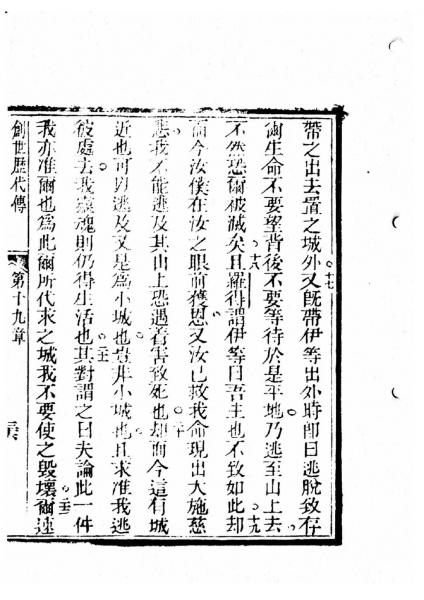 帶之出去置之城外○十七又既帶伊等出外時卽曰逃脫致存
爾生命不要望背後不要等待於是平地乃逃至山上去
不然恐爾被滅矣○十八且羅得謂伊等曰吾主也不致如此○十九却
而今汝僕在汝之眼前獲恩又汝已救我命現出大施慈
悲我不能逃及其山上恐遇着害致死也○二十却而今這有城
近也可以逃及又是為小城也豈非小城也且求准我逃
彼處去我靈魂則仍得生活也○二十一其對謂之曰夫論此一件
我亦准爾也為此爾所代求之城我不要使之毀壞○二十二爾速
創世歷代傳 第十九章